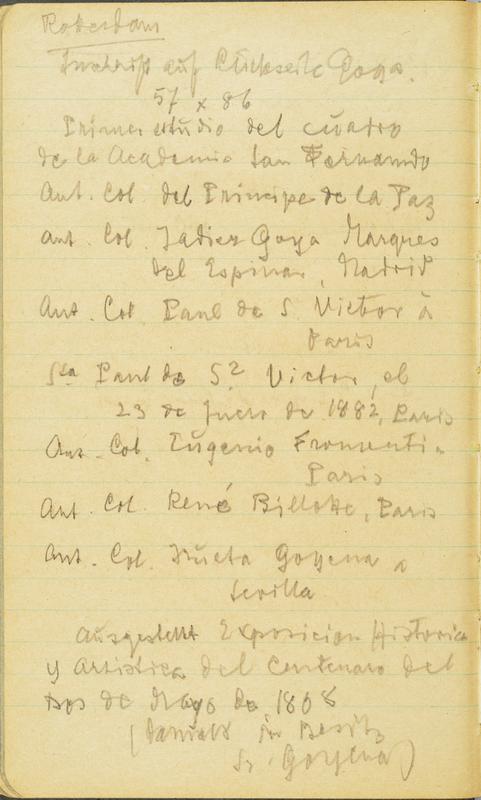 Rotterdam
Inschrift auf Rückseite Goya.
57 x 86
Primer estudio del cuadro
de la Academia San Fernando
Ant. Col del Principe de la Paz
Ant. Col. Goya Marques
del Espinar, Madrid
Ant. Col Paul de S. Victor à
Paris
Paul de S? Victor, el
23 de de 1882, Paris
Ant. Col. Eugenio Fromentin
Paris
Ant. Col. René Billotte, Paris
Ant. Col. Goyena a
Sevilla
Ausgestellt Exposicion Historica
y Artistica del Centenaro del
Dos de Mayo de 1808
(damals im Besitz
Sr. Goyena)